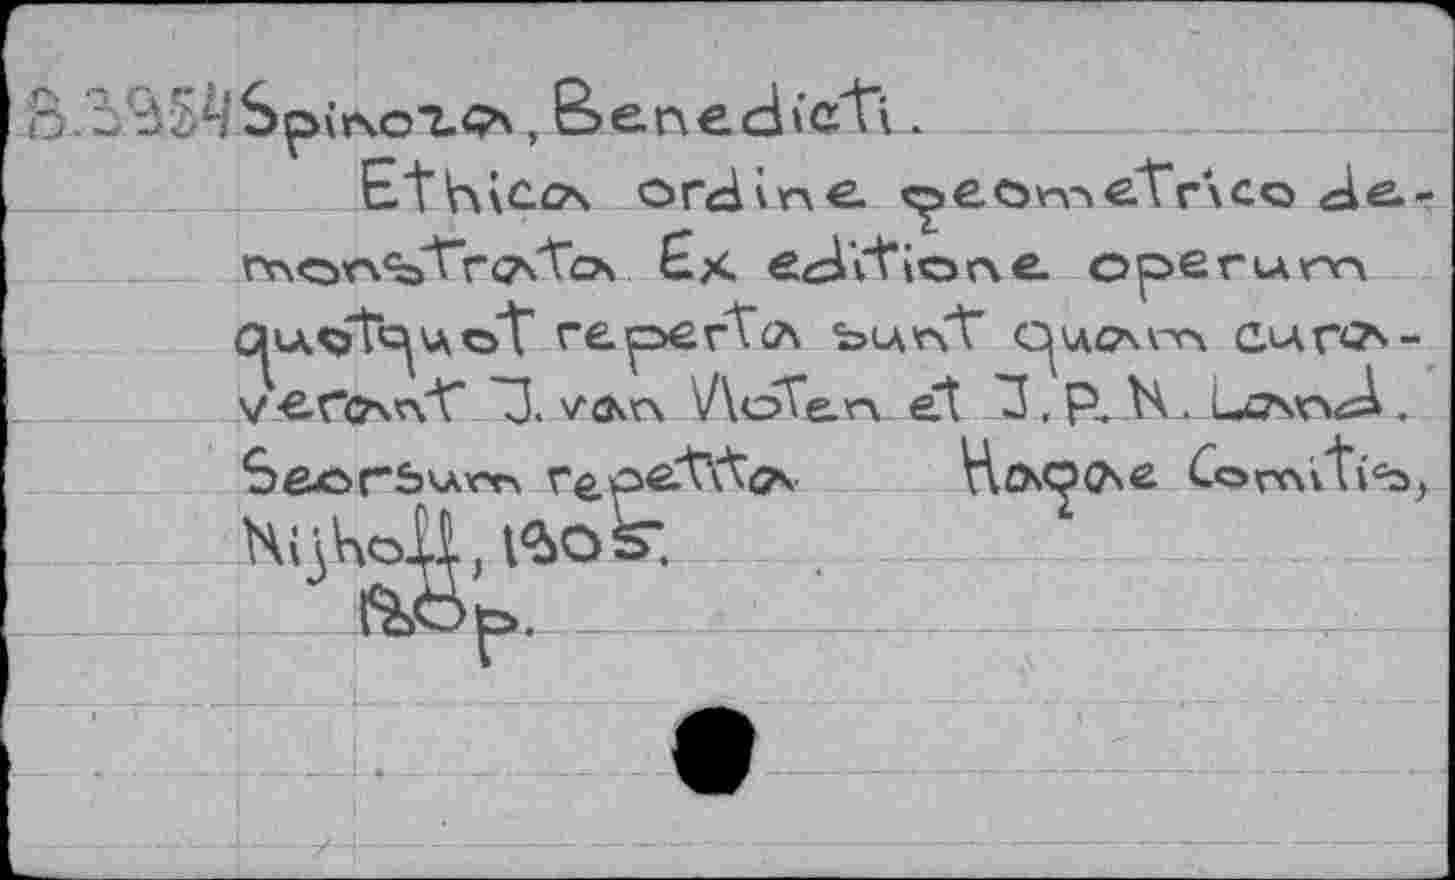 B.39254 Spinoza, Benedicti.
Ethica ordine geometrico de-
monstrata Ex editione operum
quotquot reperta sunt quam cura-
verant J. van Vloten et J. P. N. Land.
Seorsum repetita Hagae Comitis,
Nijhoff, 1905.
180p.